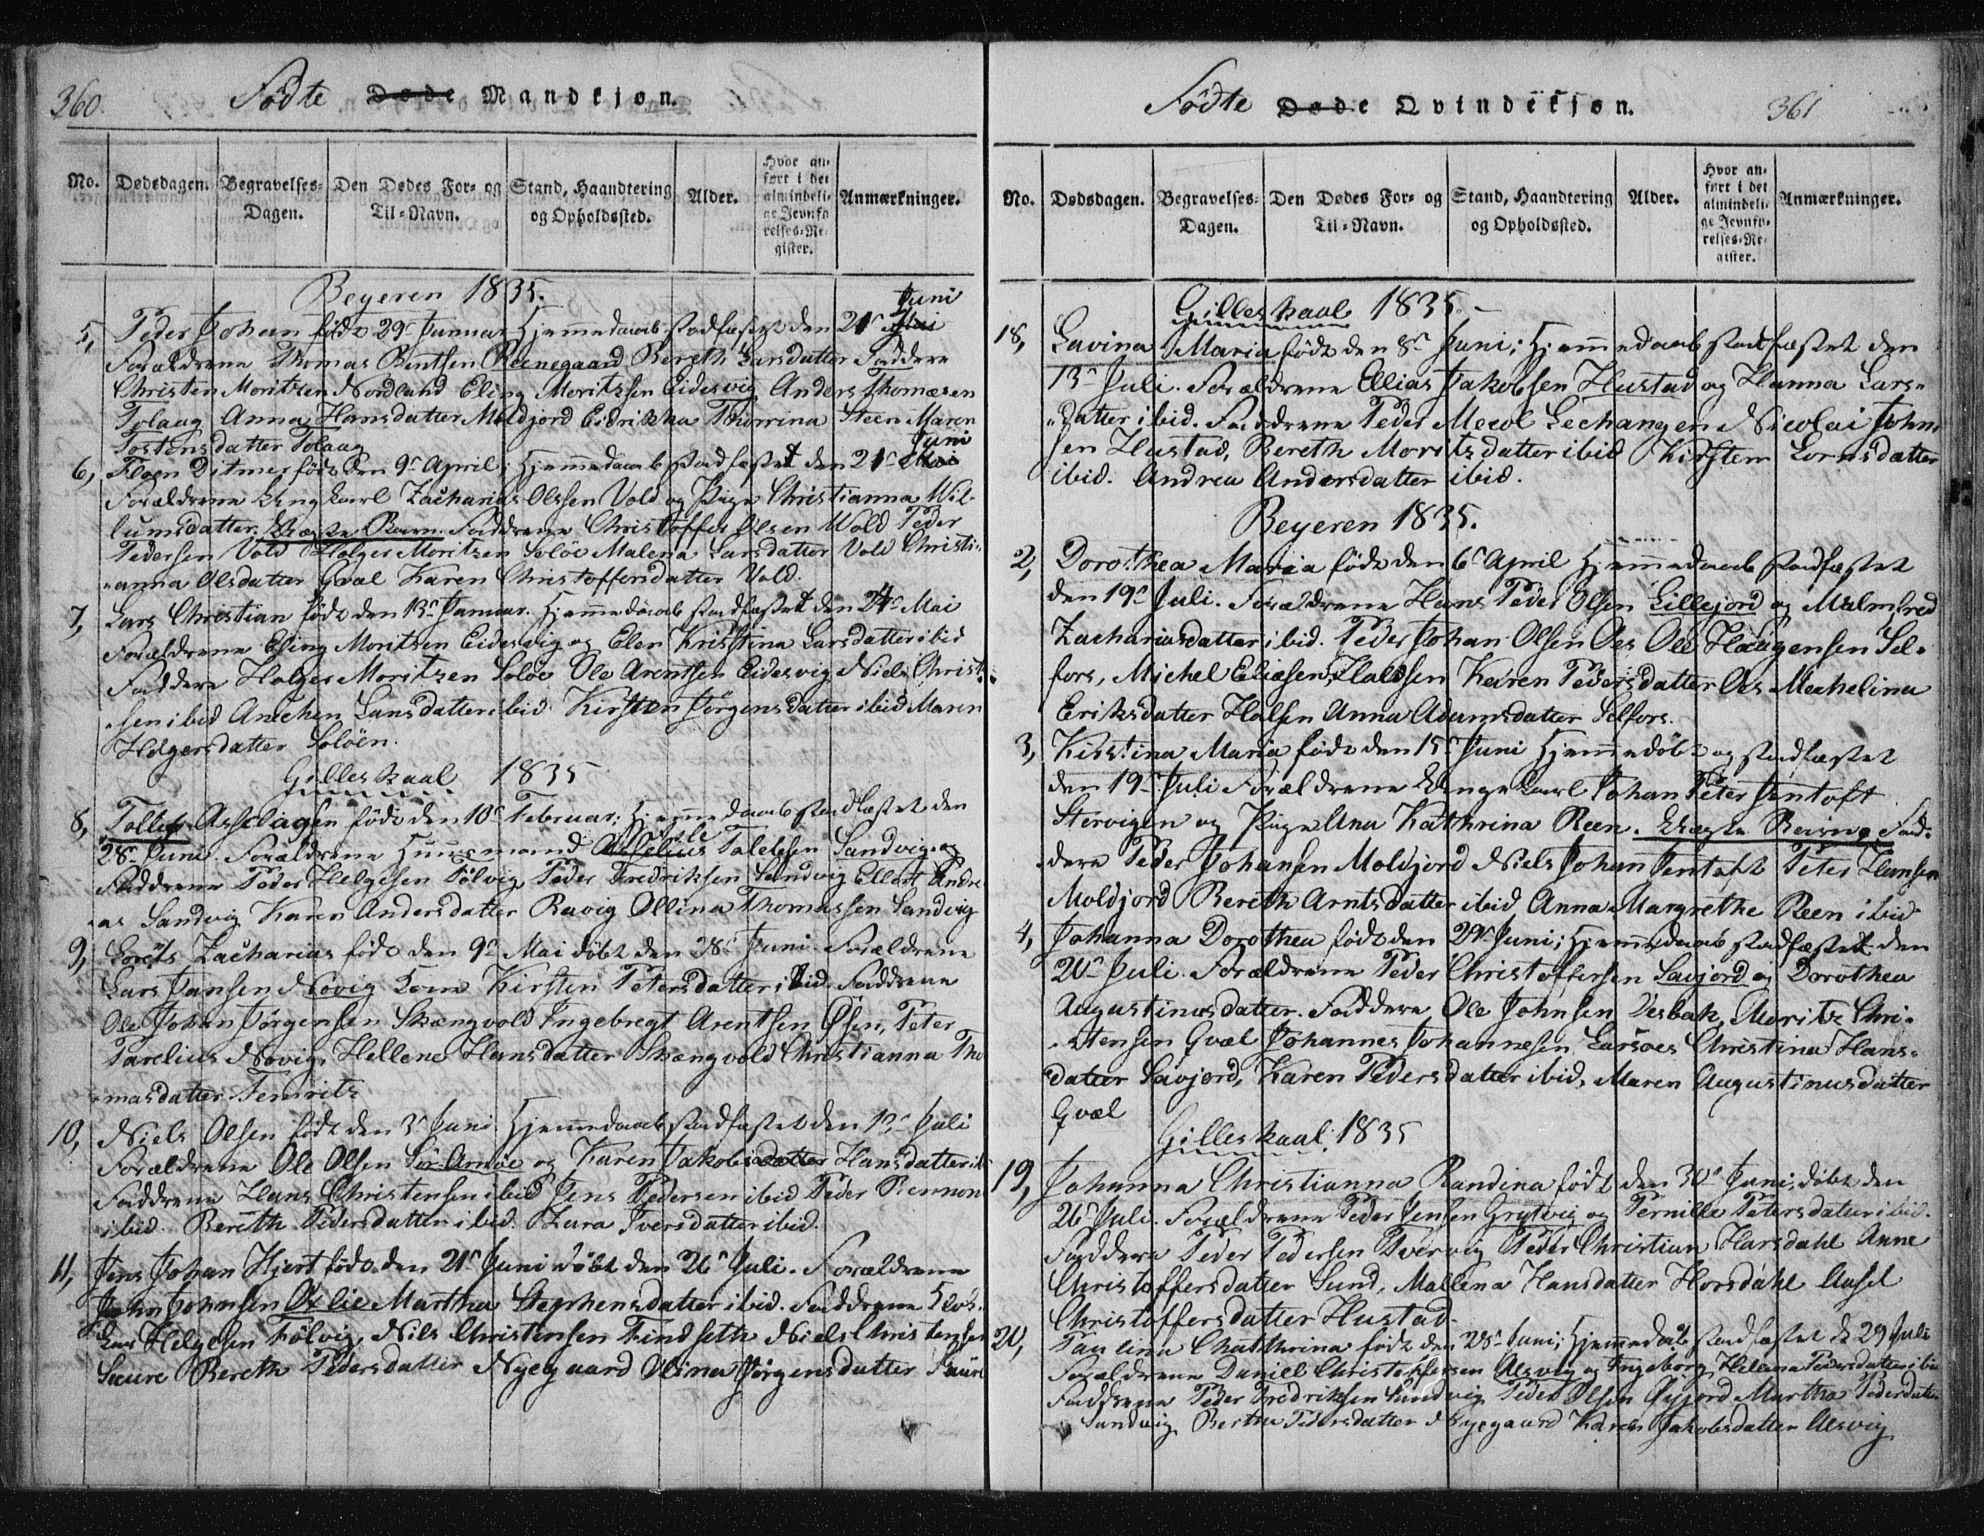 360. Fødte Døde Mandkjøn.
No. Dødsdagen. Begravelses-Dagen. Den Dødes For- og Til-Navn. Stand, Haandtering og Opholdssted. Alder. Hvor anført i det almindelige Jevnførelses-Register. Anmærkninger.
Beyeren 1835.
Juni
5, Peder Johan født 29de Januar Hjemmedaab stadfæstet den 21de Mai
Forældrene Thomas Bentsen Reenegaard Bereth Larsdatter Faddere
Christen Moritzen Nordland Eling Moritssen Eidesvig Anders Thomæsen
Tolaag Anna Hansdatter Moldjord Eidrikka Thorrina Steen Maren
Tostensdatter Tolaag
Juni
6, Ditmer født den 9de April; Hjemmedaab stadfæstet den 21de Mai
Forældrene Ungkarl Zacharias Olssen Vold og Pige Christianna Wil-
lumsdatter. Uægte Barn. Faddrene Christoffer Olsen Wold Peder
Pedersen Vold Holger Moritzen Soløe Malena Larsdatter Vold Christi-
anna Olsdatter Gvæl Karen Christoffersdatter Vold.
7, Lars Christian født den 13de Januar. Hjemmedaab stadfæstet den 24de Mai
Forældrene Eling Moritzen Eidesvig og Elen Kristina Larsdatter ibid
Faddere Holger Moritzen Soløe Ole Arentsen Eidesvig Niels Christ-
sen ibid Anichen Larsdatter ibid Kirsten Jørgensdatter ibid Maren
Holgersdatter Soløen.
Gilleskaal 1835
8, Tollef Asselagsen født den 10de Februar; Hjemmedaab stadfæstet den
28de Juni. Forældrene Huusmand Tolefsen Sandvig og
Faddrene Peder Helgesen Følvig Peder Fredriksen Sandvig Ellert Andre-
as Sandvig Karen Andersdatter Ravig Ollina Thomassen Sandvig
9, Lorits Zacharias født den 9de Mai døbt den 28de Juni. Forældrene
Lars Jansen Novig Kone Kirsten Petersdatter ibid. Faddrene
Ole Johan Jørgensen Skængvold Ingebregt Arentsen Øsen, Peter
Parelius Novig, Hellene Hansdatter Skængvold Christianna Tho
masdatter Femrits
10, Niels Olsen født den 3de Juni. Hjemmedaab stadfæstet den 12de Juli
Forældrene Ole Olsen Sør Arnøe og Karen Jakobsdatter Hansdatter ib
Faddrene Hans Christensen ibid Jens Pedersen ibid Peder Rennon
ibid. Bereth Pedersdatter ibid. Zara Iversdatter ibid.
11, Jens Johan Hjert født den 21de Juni døbt den 26de Juli. Forældrene
John Johnsen Oxlie Martha Stephensdatter ibid. Faddrene
Helgesen Følvig, Nils Christensen Findseth Niels Christensen
Saure Bereth Pedersdatter Nyegaard Olina Jørgensdatter Saure
Fødte Døde Qvindekjøn. 361
No. Dødsdagen. Begravelses-Dagen. Den Dødes For- og Til-Navn. Stand, Haandtering og Opholdssted. Alder. Hvor anført i det almindelige Jevnførelses-Register. Anmærkninger.
Gilleskaal 1835.
18, Lavina Maria født den 8de Juni; Hjemmedaab stadfæstet den
13de Juli. Forældrene Ellias Jakobsen Hustad og Hanna Lars-
datter ibid. Faddrene Peder Meeol Sechangen Nicolai John-
sen Hustad, Bereth Moritzdatter ibid Kirsten Lornsdatter
ibid. Andrea Andersdatter ibid.
Beyeren 1835.
2, Dorothea Maria født den 6de April Hjemmedaab stadfæstet
den 19de Juli. Forældrene Hans Peder Olsen Lillejord og Malmfred
Zachariasdatter ibid. Peder Johan Olsen Oes Ole Haagensen Sel-
fors, Michel Eliæsen Halssen Karen Pedersdatter Oes Mechelina
Eriksdatter Halsen Anna Adamsdatter Selfors.
3, Kistina Maria født den 15de Juni Hjemmedøbt og stadfæstet
den 19de Juli Forældrene Ungekarl Johan Peter Jentoft
Stervigen og Pige Una Kathrina Reen. Uægte Reisng. Fad-
dere Peder Johansen Moldjord Niels Johan Jentoft Peter Hansen
Moldjord Bereth Arntsdatter ibid Anna Margrethe Reen ibid
4, Johanna Dorothea født den 24de Juni; Hjemmedaab stadfæstet den
20de Juli. Forældrene Peder Christoffersen Savjord og Dorothea
Augustinusdatter. Faddere Ole Johnsen Vesbak, Morits Chri-
stensen Gvæl Johannes Johannesen Larsoes Christina Hans-
datter Savjord, Karen Pedersdatter ibid, Maren Augustinusdatter
Gvæl
Gilleskaal 1835
19, Johanna Christianna Randina født den 30de Juni, døbt den
26de Juli. Forældrene Peder Jensen Grytvig og Pernilla Petersdatter ibid.
Faddere Peder Pedersen Tvervig Peder Christian Harsdahl Anne
Christoffersdatter Sund, Mallena Hansdatter Horsdahl Assel
Christoffersdatter Hustad.
20, Paulina Chatthrina født den 28de Juni; Hjemmedaab stadfæstet d 29 Juli
Forældrene Daniell Christoffersen Alsvig og Ingeborg Helena Pedersdatter ibid
Faddrene Peder Fredriksen Sandvig Peder Olsen Øyjord Martha Pedersdatter
Sandvig Berthe Pedersdatter Nyegaard Karen Jakobsdatter Alsvig